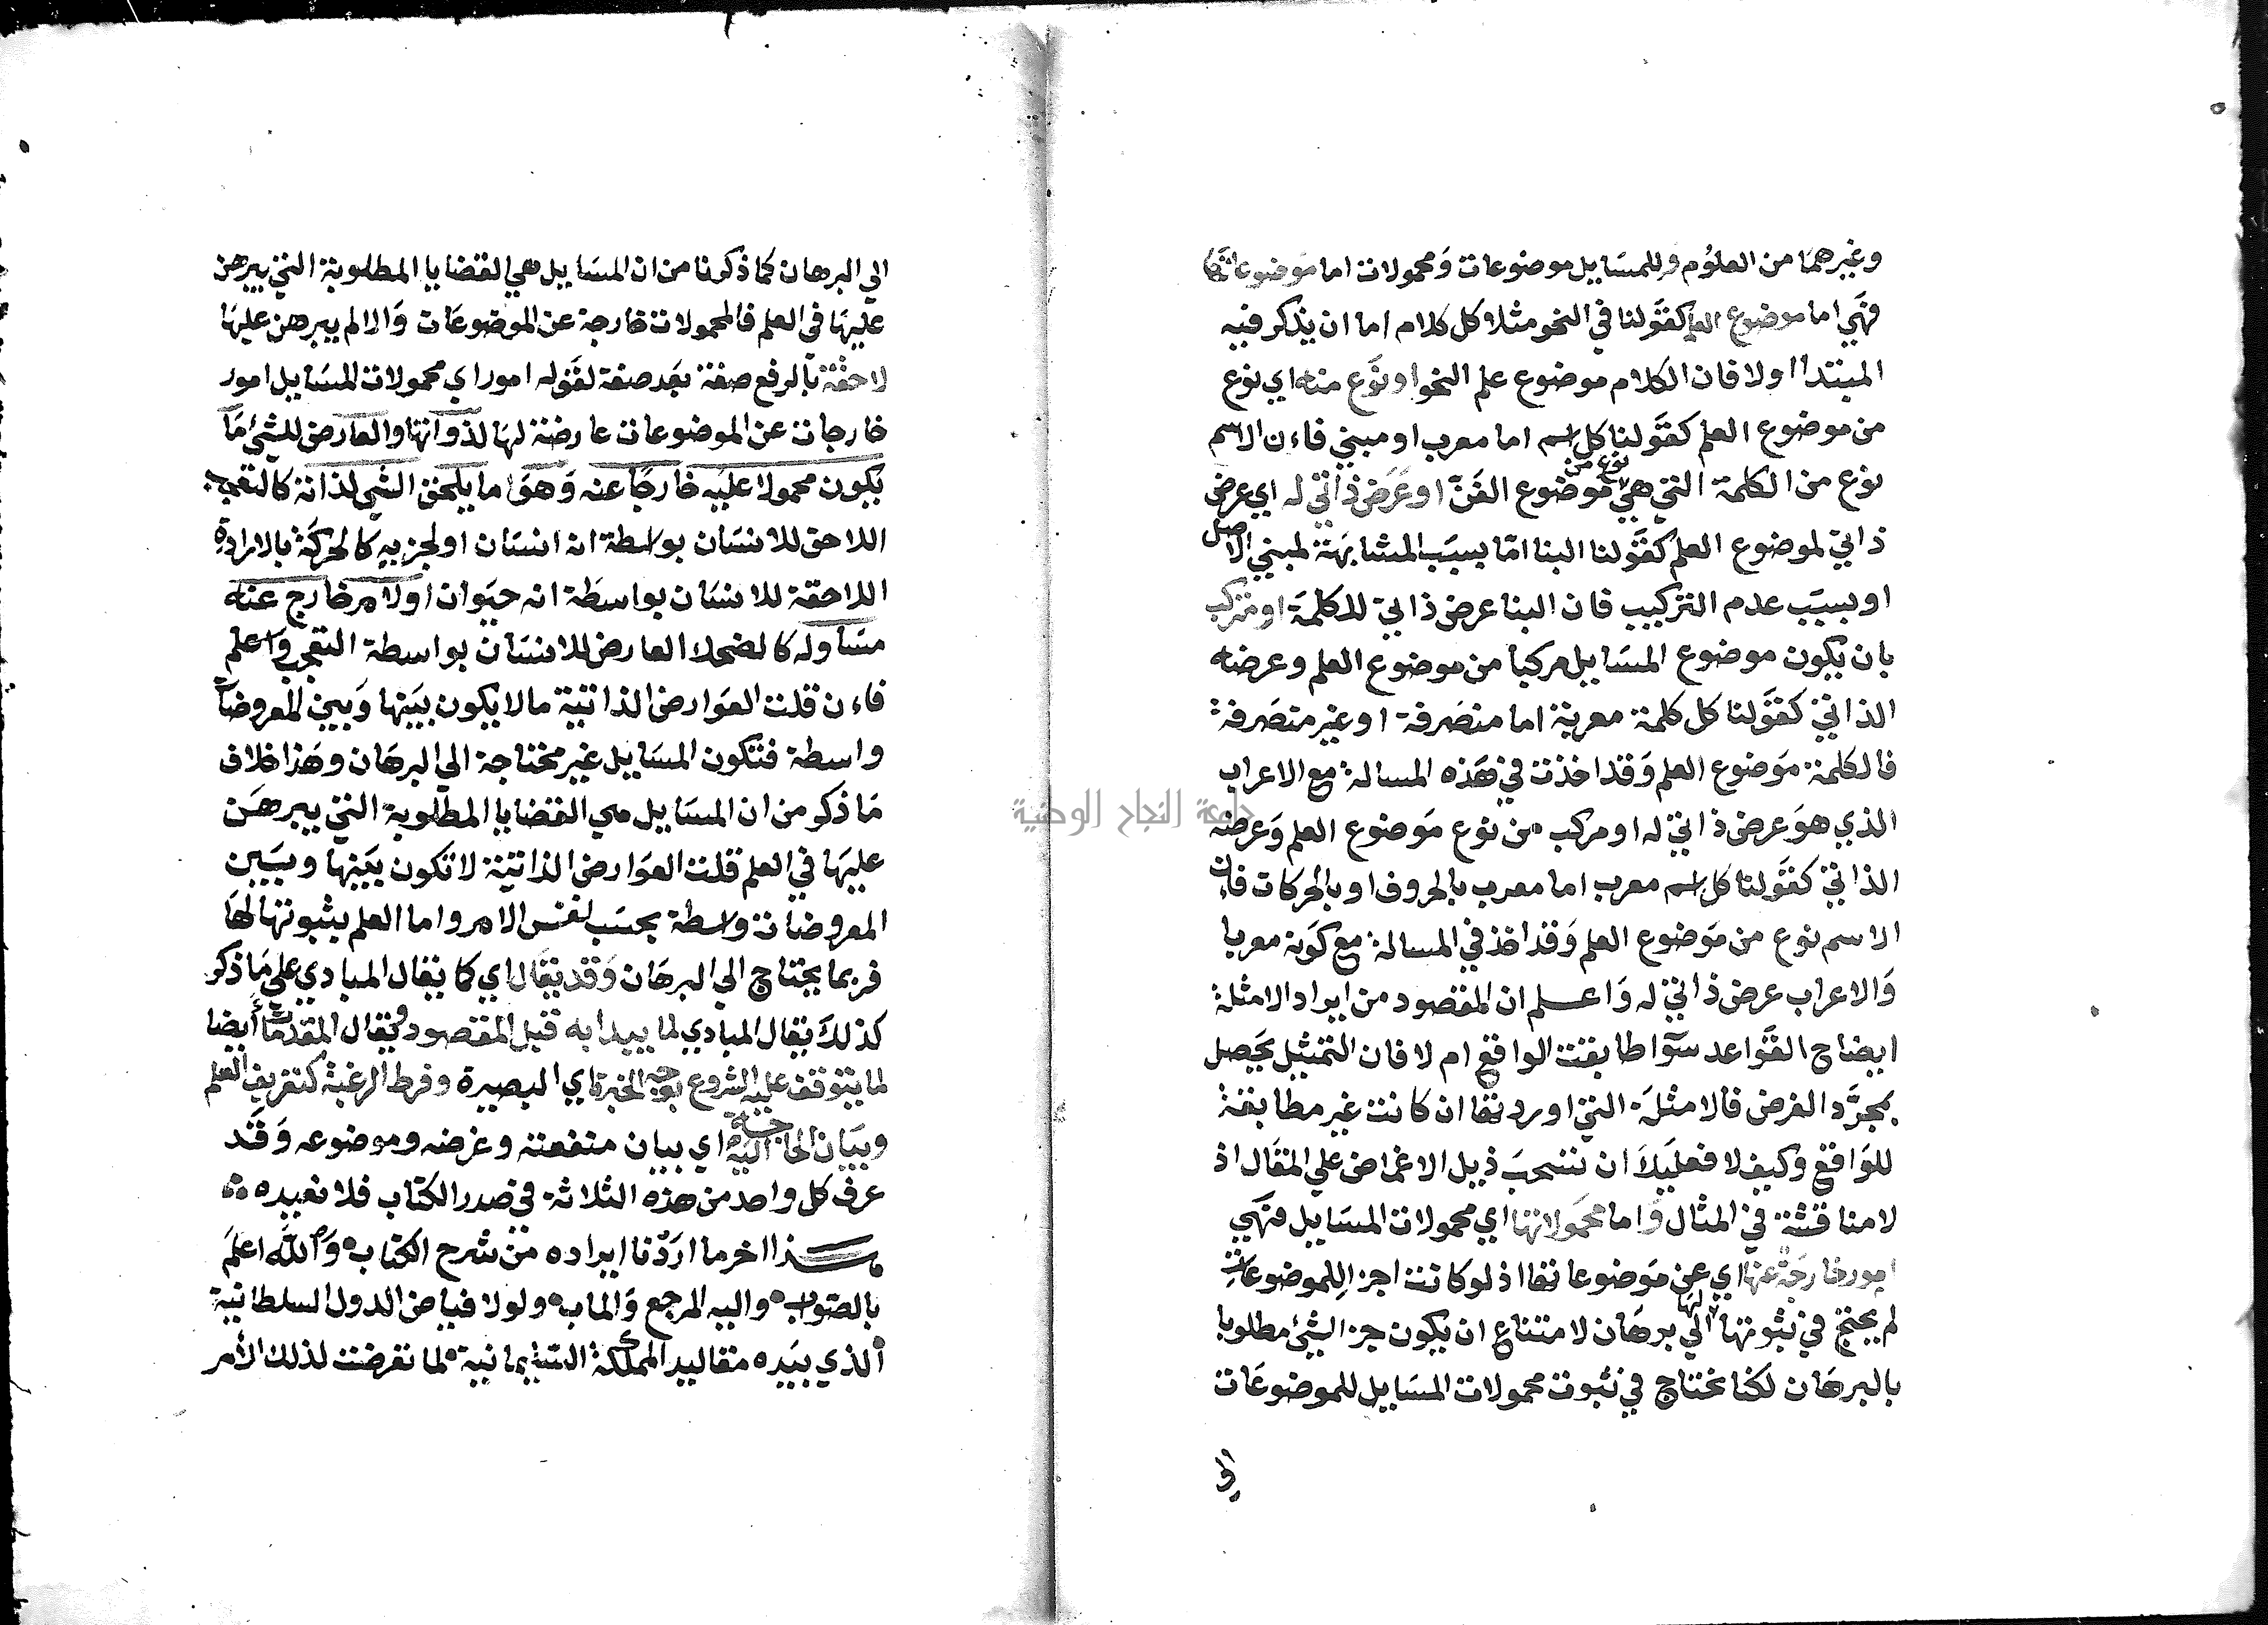 وغيرهما من العلوم وللمسايل موضوعات ومحمولات اما موضوعاتها
فهي اما موضوع العلم كقولنا في النحو مثلا كل كلام اما ان يذكر فيه
المبتدا اولا فان الكلام موضوع علم النحو او نوع منه اي نوع
من موضوع العلم كقولنا كل اسم اما معرب او مبني فاءن الاسم
نوع من الكلمة التي هي نوع من موضوع الفن او عرض ذاتي له اي عرض
ذاتي لموضوع العلم كقولنا البنا اما بسبب المشابهة لمبني الاصل
او بسبب عدم التركيب فان البنا عرض ذاتي للكلمة او مركب
بان يكون موضوع المسايل مركبا من موضوع العلم وعرضه
الذاتي كقولنا كل كلمة معربة اما منصرفة او غير منصرفة
فالكلمة موضوع العلم وقد اخذت في هذه المسالة مع الاعراب
الذي هو عرض ذاتي له او مركب من نوع موضوع العلم وعرضه
الذاتي كقولنا كل اسم معرب اما معرب بالحروف او بالحركات فان
الاسم نوع من موضوع العلم وقد اخذ في المسالة مع كونه معربا
والاعراب عرض ذاتي له واعلم ان المقصود من ايراد الامثلة
ايضاح القواعد سوآ طابقت الواقع ام لا فان التمثيل يحصل
بمجرد الفرض فالامثلة التي اوردتها ان كانت غير مطابقة
للواقع وكيف لا فعليك ان تسحب ذيل الاغماض علي المقال اذ
لا مناقشة في المثال واما محمولاتها اي محمولات المسايل فهي
امور خارجة عنها اي عن موضوعاتها اذ لو كانت اجزا للموضوعات
لم يحتج في ثبوتها لها الي برهان لامتناع ان يكون جزء الشئ مطلوبا
بالبرهان لكنا نحتاج في ثبوت محمولات المسايل للموضوعات
الي
الي البرهان كما ذكرنا من ان المسايل هي القضايا المطلوبة التي يبرهن
عليها في العلم فالمحمولات خارجة عن الموضوعات والا لم يبرهن عليها
لاحقة بالرفع صفة بعد صفة لقوله امور اي محمولات المسايل امور
خارجات عن الموضوعات عارضة لها لذواتها والعارض للشئ ما
يكون محمولا عليه خارجا عنه وهو ما يلحق الشي لذاته كالتعجب
اللاحق للانسان بواسطة انه انسان او لجزيه كالحركة بالارادة
اللاحقة للانسان بواسطة انه حيوان او لامر خارج عنه
مساو له كالضحك العارض للانسان بواسطة التعجب واعلم
فاءن قلت العوارض الذاتية ما لا يكون بينها وبين المعروضات
واسطة فتكون المسايل غير محتاجة الي البرهان وهذا خلاف
ما ذكر من ان المسايل هي القضايا المطلوبة التي يبرهن
عليها في العلم قلت العوارض الذاتية لا تكون بينها وبين
المعروضات واسطة بحسب نفس الامر واما العلم بثبوتها لها
فربما يحتاج الي البرهان وقد يقال اي كما يقال المبادي علي ما ذكر
كذلك يقال المبادي لما يبدا به قبل المقصود ويقال المقدمات أيضا
لما يتوقف عليه الشروع بوجه الخبرة اي البصيرة وفرط الرغبة كتعريف العلم
وبيان الحاجة اليه اي بيان منفعته وغرضه وموضوعه وقد
عرف كل واحد من هذه الثلاثة في صدر الكتاب فلا نعيده
هذا اخر ما اردنا ايراده من شرح الكتاب والله اعلم
بالصواب واليه المرجع والماب ولولا فياض الدول السلطانية
الذي بيده مقاليد المملكة السليمانية لما تعرضت لذلك الأمر
جامعة النجاح الوطنية